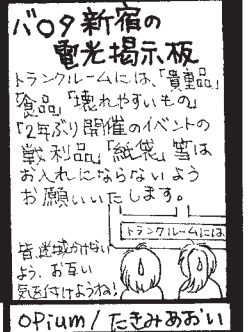 バ〇タ新宿の
電光掲示板
トランクルームには、「貴重品」
「食品」「壊れやすいもの」
「2年ぶり開催のイベントの
戦利品」「紙袋」等は
お入れにならないよう
お願いいたします。
トランクルームには
皆、迷惑かけない
よう、お互い
気を付けようね!
opium/たきみあおい